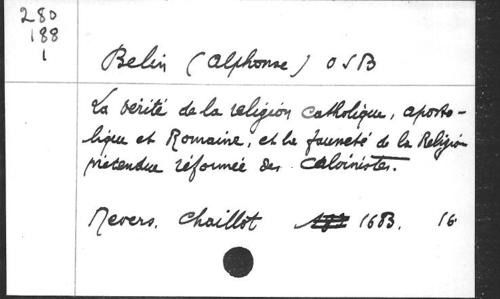 280
188
1
Belin (Alphonse) OSB
La vérité de la religion catholique, aposto-
lique et Romaine, et la fausseté de la Religion
prétendue réformée des Calvinistes.
Nevers. Chaillot 1683. 16